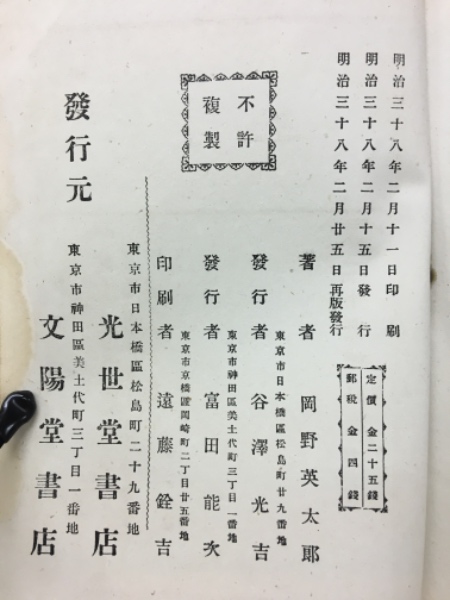 明治三十八年二月十一日印刷
明治三十八年二月十五日發行
明治三十八年二月廿五日再版發行
定價金二十五錢
郵税金四錢
不許
複製
著者 岡野英太郎
東京市日本橋區松島町廿九番地
發行者 谷澤光吉
東京市神田區美土代町三丁目一番地
發行者 富田能次
東京市京橋區岡崎町二丁目廿五番地
印刷者 遠藤銓吉
發行元
東京市日本橋區松島町二十九番地
光世堂書店
東京市神田區美土代町三丁目一番地
文陽堂書店